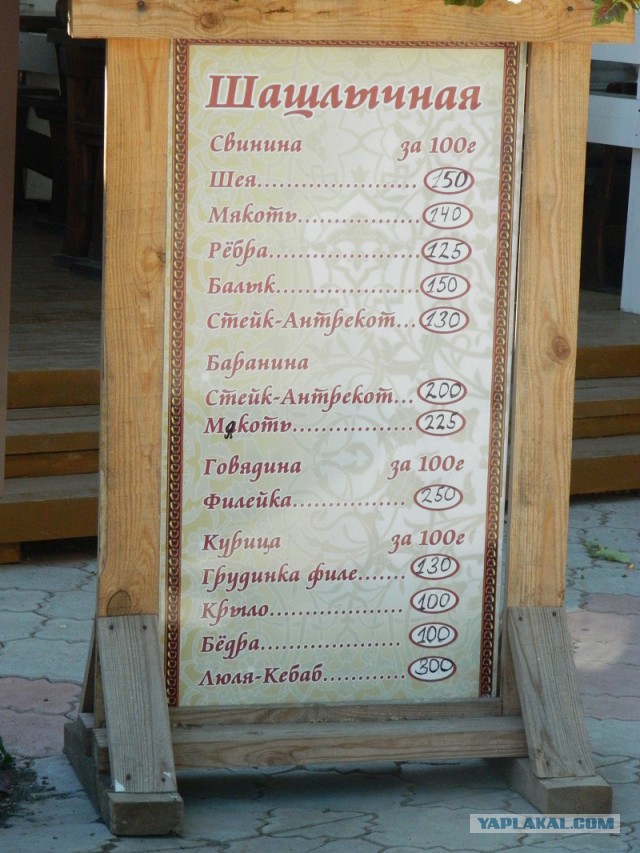 Шащлычная
Свинина за 100г
Шея...................... 150
Мякоть................. 140
Рёбра..................... 125
Балык.................... 150
Стейк-Антрекот... 130
Баранина
Стейк-Антрекот... 200
Мякоть................. 225
Говядина за 100г
Филейка................ 250
Курица за 100г
Грудинка филе....... 130
Крыло................... 100
Бёдра.................... 100
Люля-Кебаб............ 300
YAPLAKAL.COM